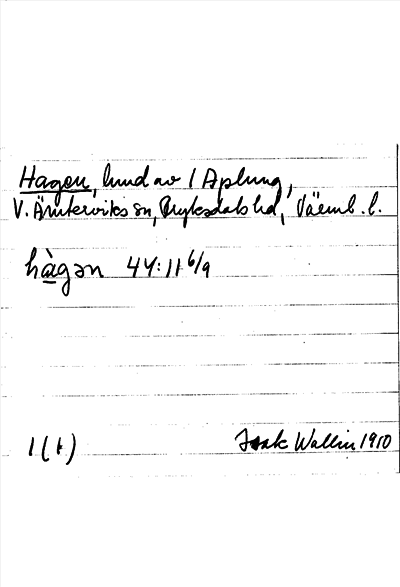 Hagen, hmd av 1 Aplung,
V. Ämterviks sn, Fryksdals hd, Värml. l.
hàgən 44:11 6/9
1(t)
Isak Wallin 1910